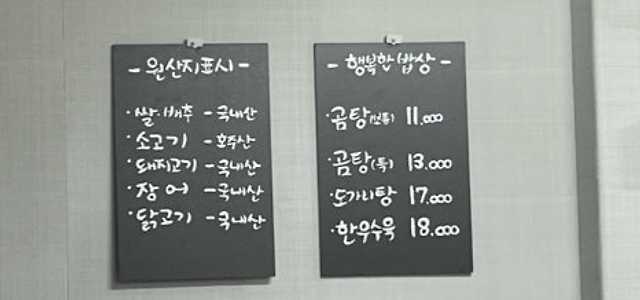 - 원산지표시 -
· 쌀·배추 - 국내산
· 소고기 - 호주산
· 돼지고기 - 국내산
· 장어 - 국내산
· 닭고기 - 국내산
- 행복한 밥상 -
· 곰탕(보통) 11.000
· 곰탕(특) 13.000
· 도가니탕 17.000
· 한우수육 18.000